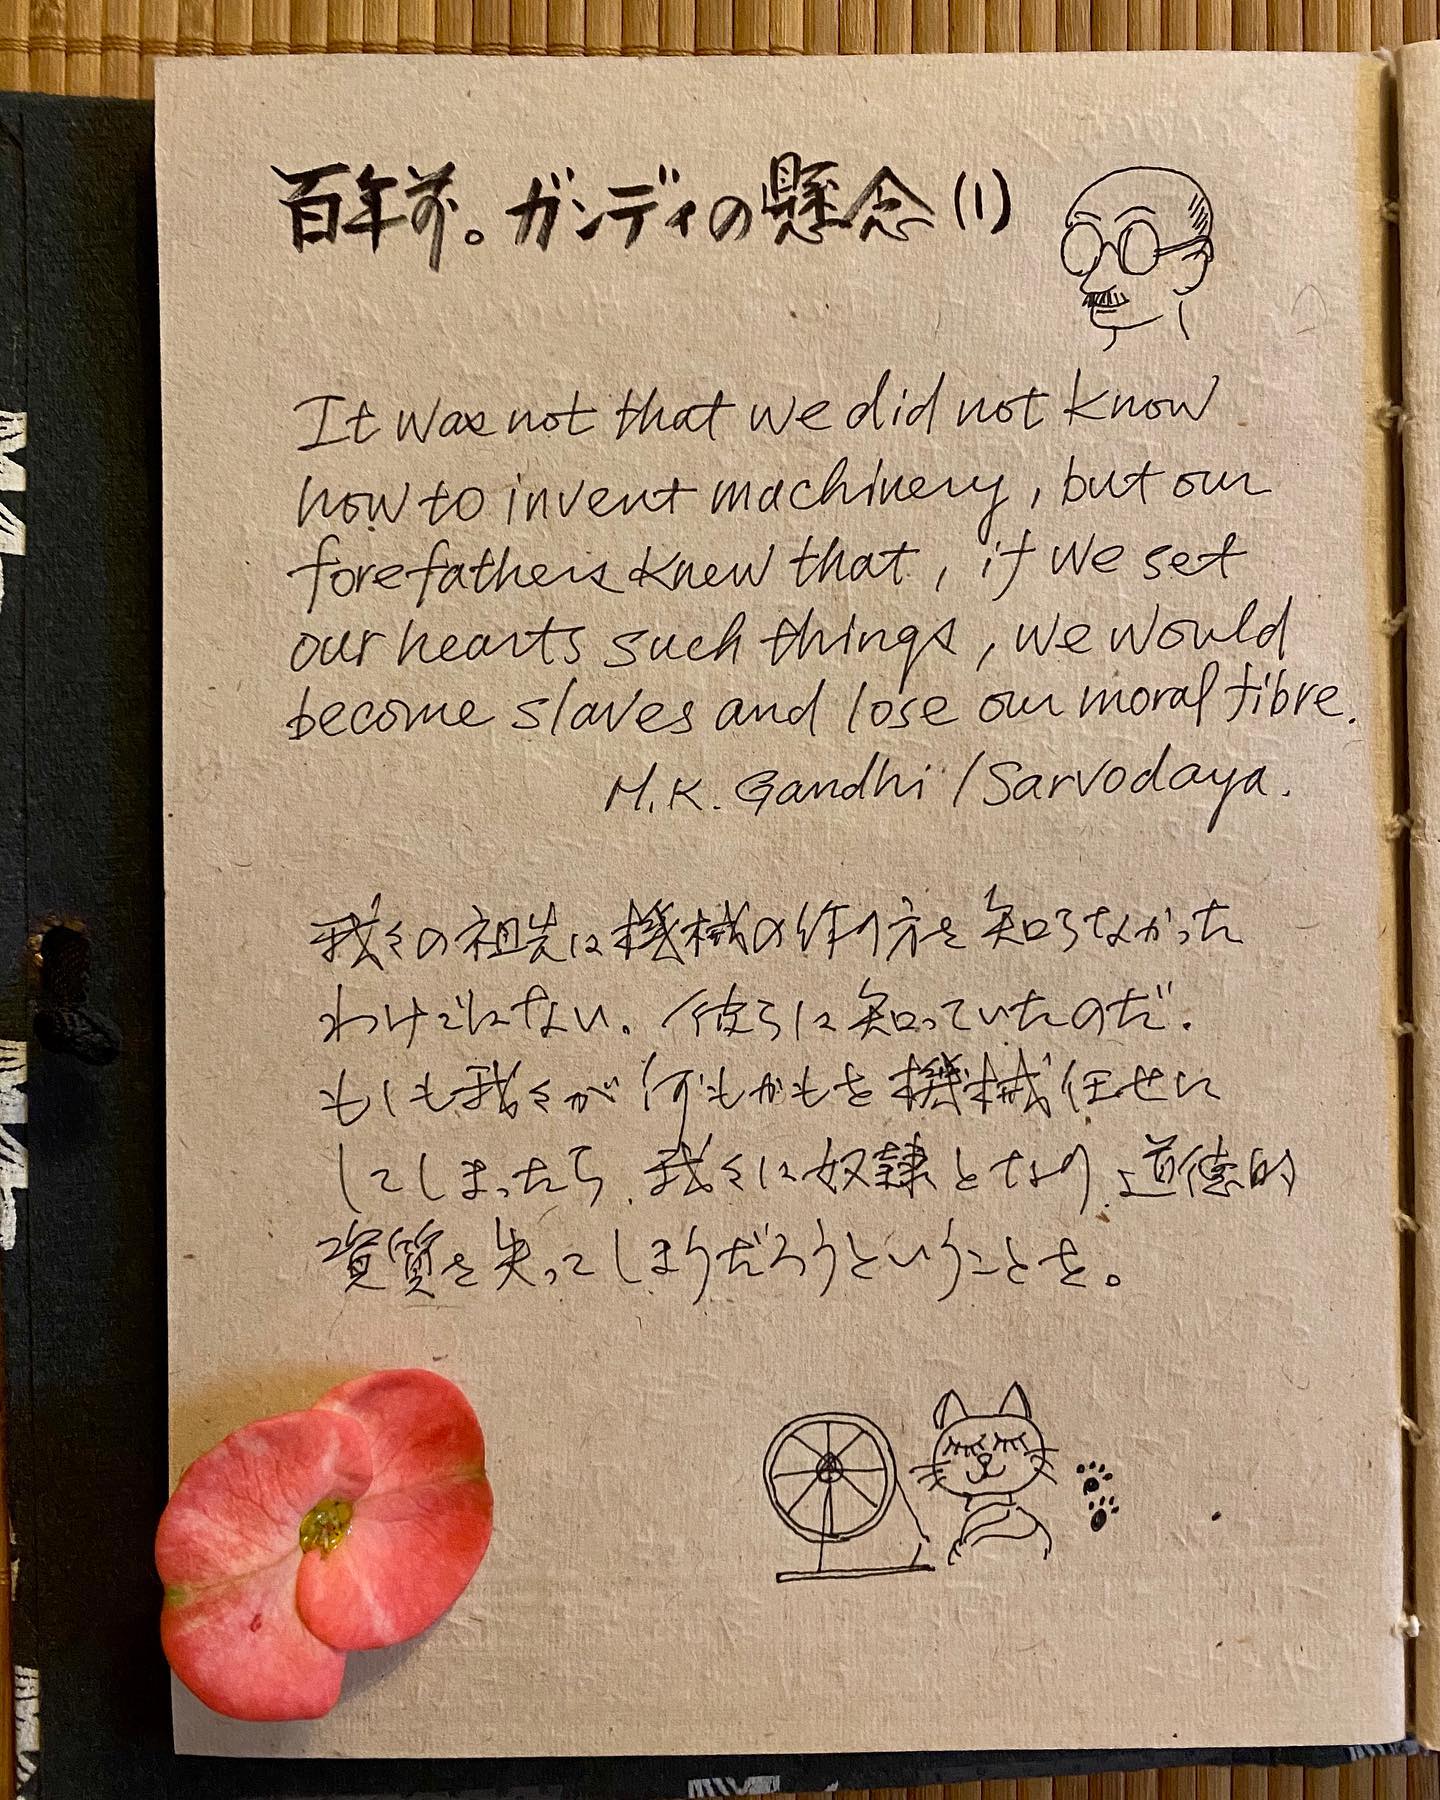 百年前。ガンディの懸念(1)
It was not that we did not know
how to invent machinery, but our
forefathers knew that, if we set
our hearts such things, we would
become slaves and lose our moral fibre.
M.K. Gandhi / Sarvodaya.
我々の祖先は機械の作り方を知らなかった
わけではない。彼らは知っていたのだ。
もしも我々が何もかもを機械任せに
してしまったら、我々は奴隷となり、道徳的
資質を失ってしまうだろうということを。